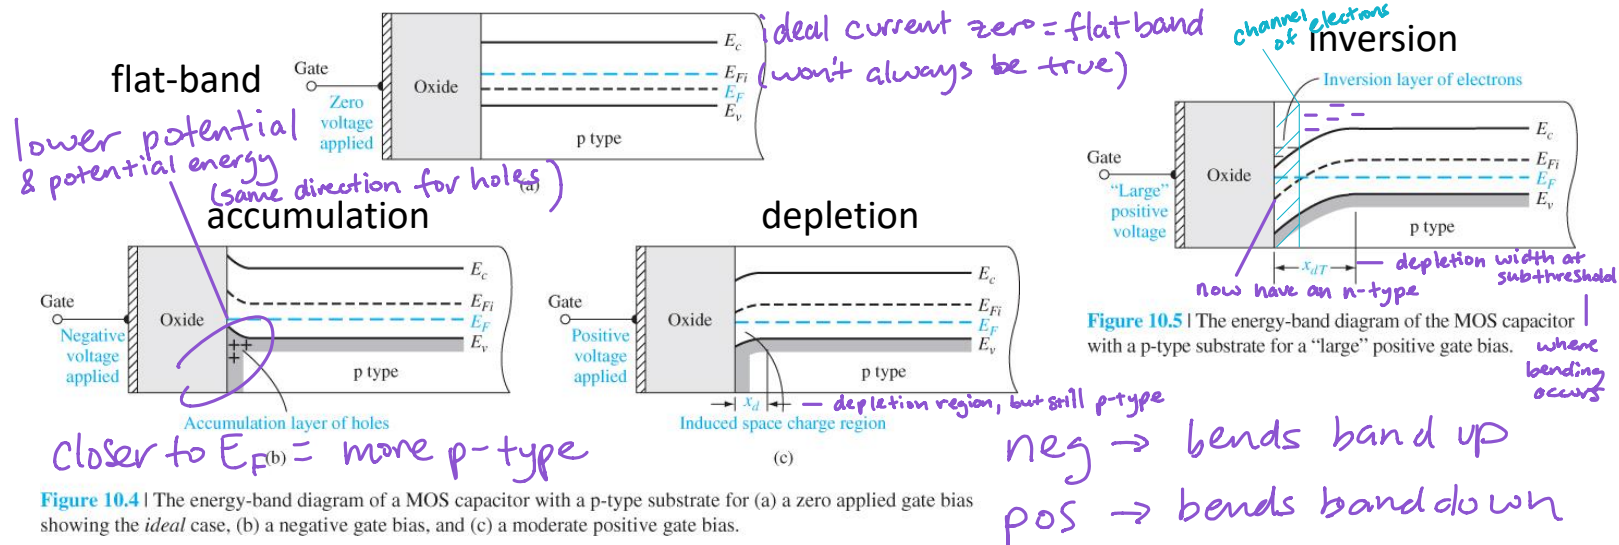 flat-band
Gate
Zero
voltage
applied
Oxide
Ec
EFi
EF
Ev
p type
(a)
ideal current zero = flat band
(won't always be true)
lower potential
& potential energy
(same direction for holes)
accumulation
Gate
Negative
voltage
applied
Oxide
++
+
Ec
EFi
EF
Ev
p type
Accumulation layer of holes
(b)
closer to EF = more p-type
depletion
Gate
Positive
voltage
applied
Oxide
Ec
EFi
EF
Ev
p type
xd
— depletion region, but still p-type
Induced space charge region
(c)
Figure 10.4 | The energy-band diagram of a MOS capacitor with a p-type substrate for (a) a zero applied gate bias
showing the ideal case, (b) a negative gate bias, and (c) a moderate positive gate bias.
channel
of electrons
inversion
Inversion layer of electrons
Gate
"Large"
positive
voltage
Oxide
Ec
EFi
EF
Ev
p type
xdT
— depletion width at
subthreshold
where
bending
occurs
now have an n-type
Figure 10.5 | The energy-band diagram of the MOS capacitor
with a p-type substrate for a "large" positive gate bias.
neg → bends band up
pos → bends band down